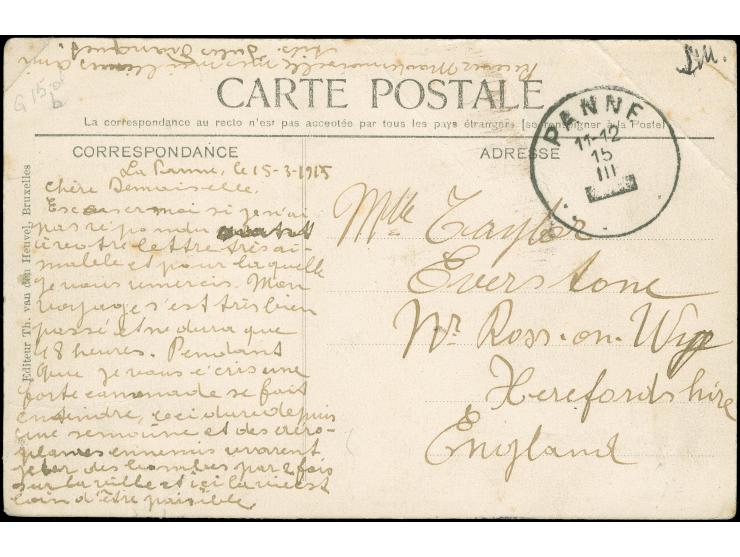 S.M.
G 15.-
b
CARTE POSTALE
La correspondance au recto n'est pas acceptée par tous les pays étrangers [se renseigner à la Poste]
CORRESPONDANCE
ADRESSE
PANNE
11-12
15
III
Editeur Th. van den Heuvel, Bruxelles
La Panne, le 15-3-1915
Chère Demaiselle.
Excuser moi si je n'ai
pas répondu
à votre lettre très ai-
malele et pour laquelle
je vous remercis. Mon
voyage s'est très bien
passé et ne dura que
48 heures. Pendant
que je vous écris une
forte canonade se fait
entendre, ceci dure depuis
une semaine et des aéro-
planes ennemis
jeter des bombes par 2 fois
sur la ville et ici la vie est
loin d'être paisible.
Recevez Mademoiselle
Jules
Mlle Taylor
Everstone
Nr. Ross-on-Wye
Herefordshire
England